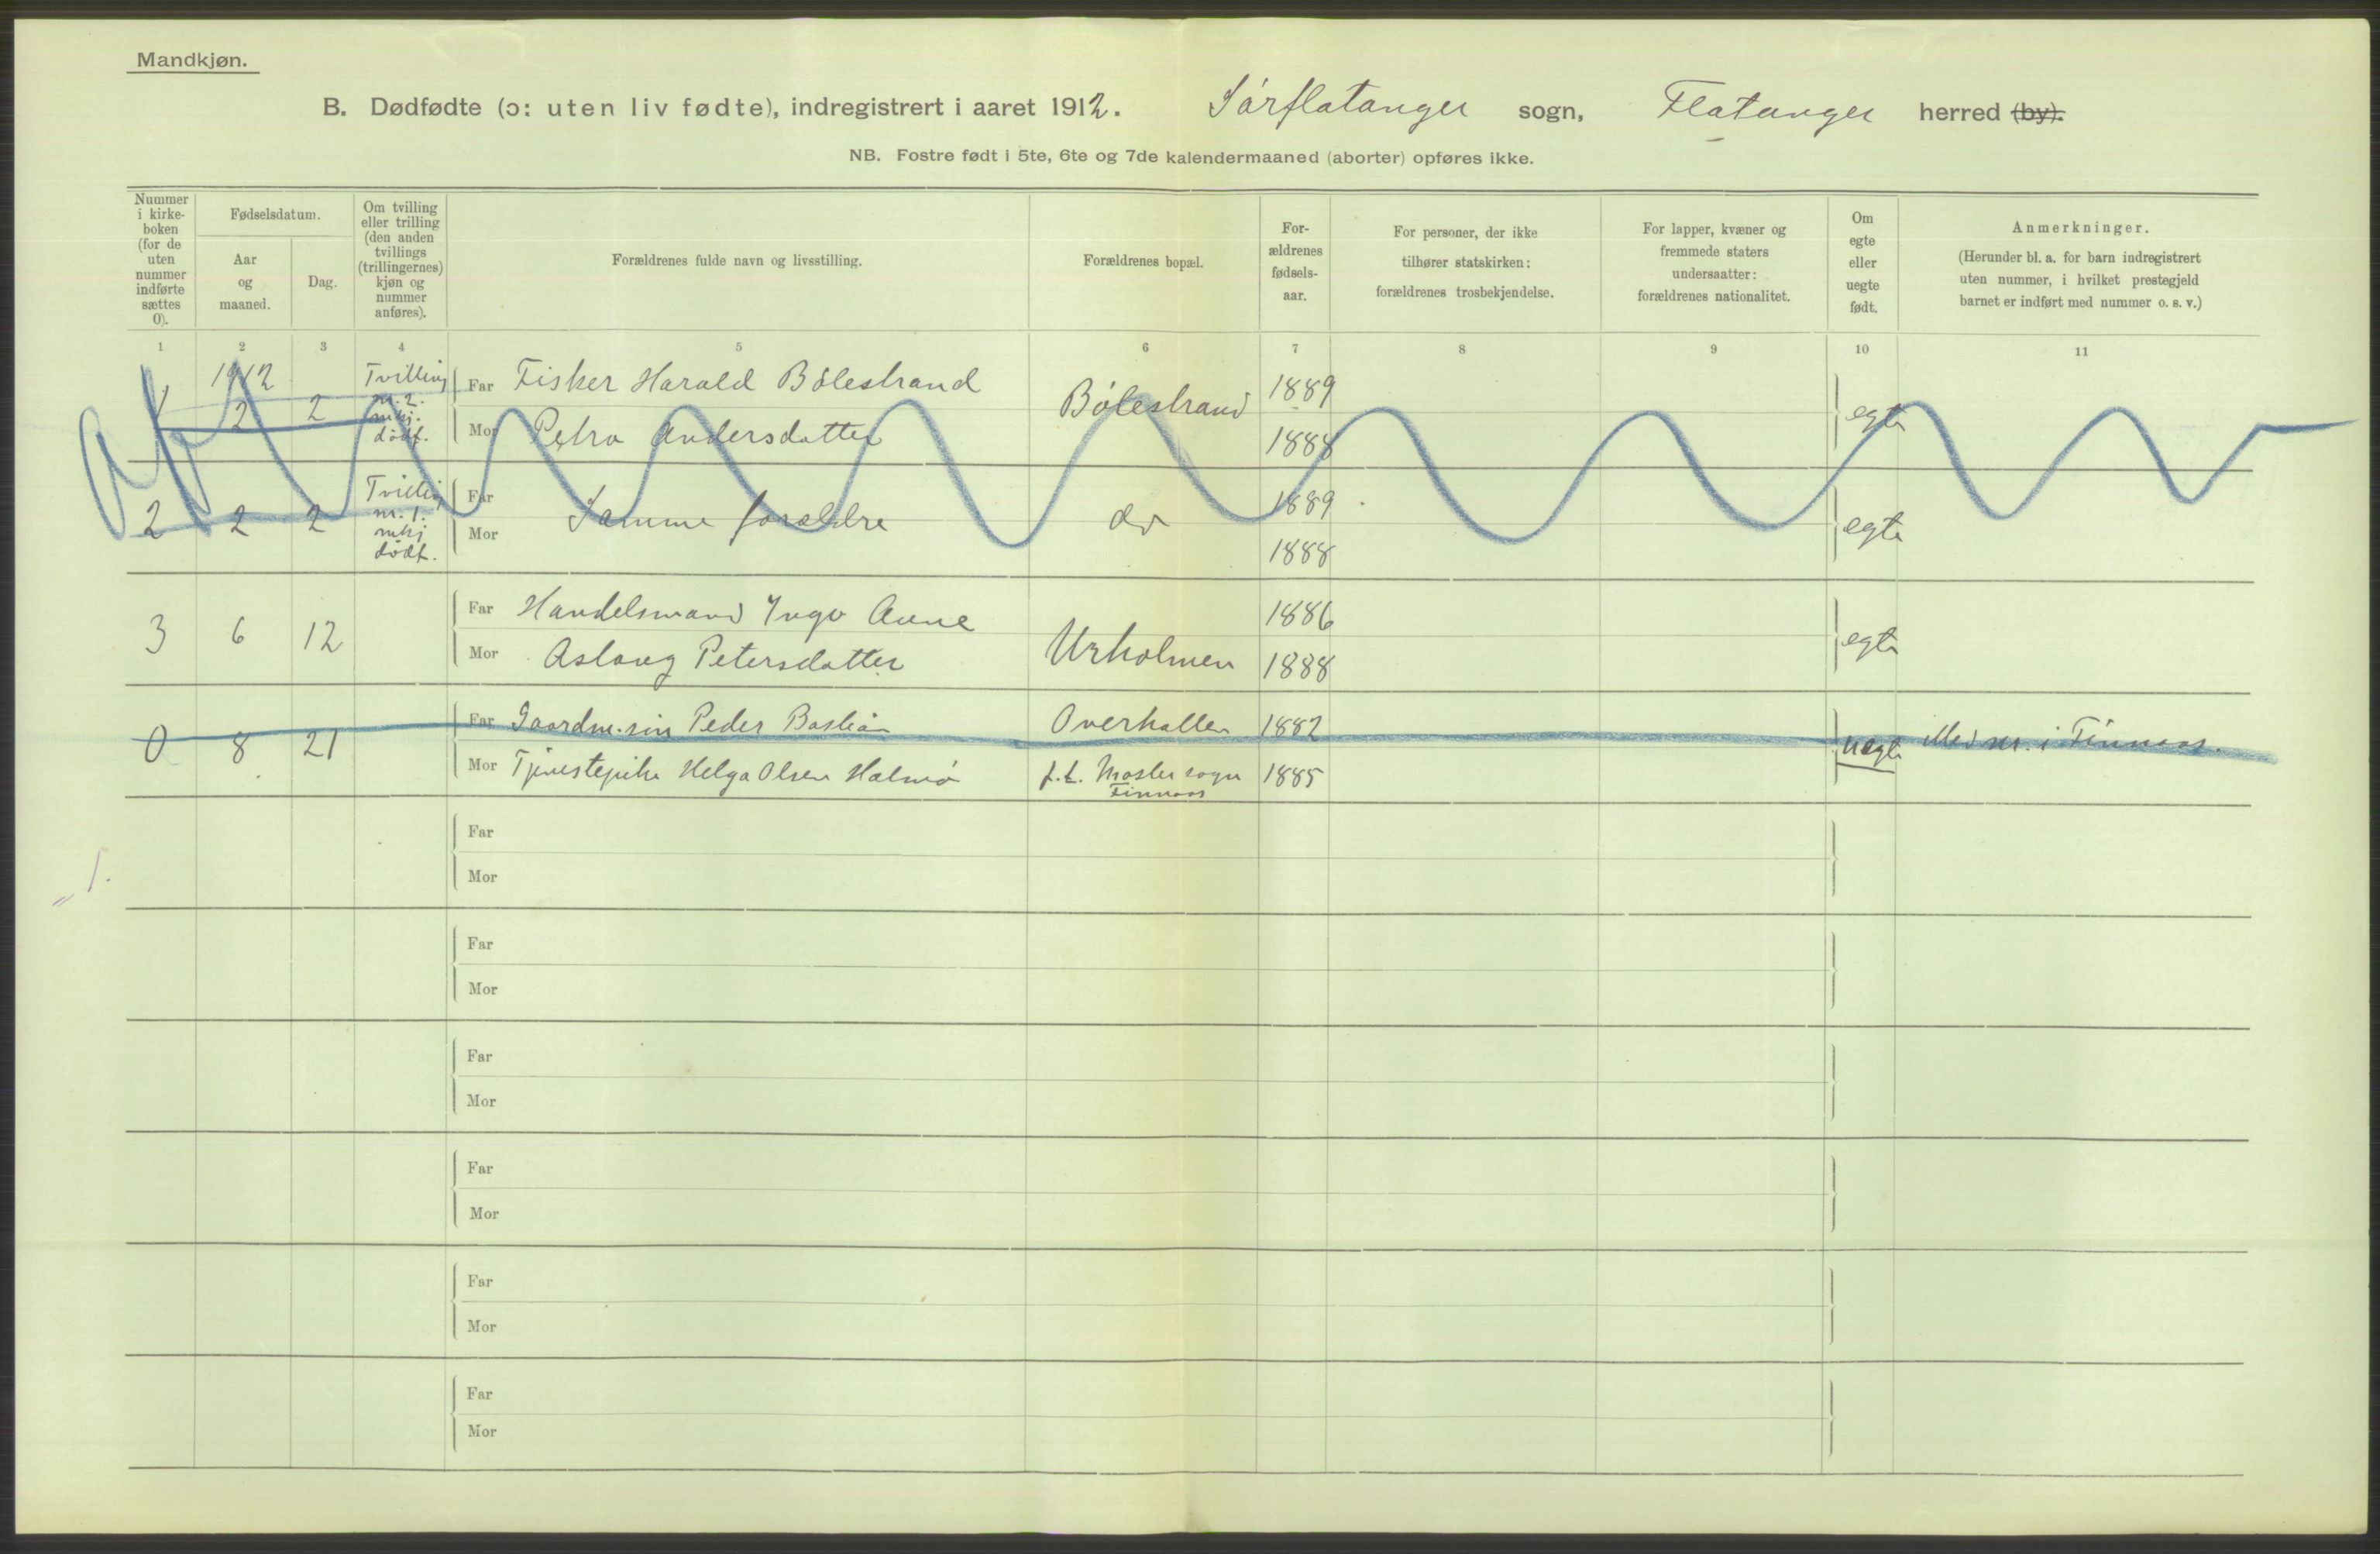 Mandkjøn.
B. Dødfødte (ɔ: uten liv fødte), indregistrert i aaret 1912. Sørflatanger sogn, Flatanger herred (by).
NB. Fostre født i 5te, 6te og 7de kalendermaaned (aborter) opføres ikke.
Nummer
i kirke-
boken
(for de
uten
nummer
indførte
sættes
0).
Fødselsdatum.
Aar
og
maaned.
Dag.
Om tvilling
eller trilling
(den anden
tvillings
(trillingernes)
kjøn og
nummer
anføres).
Forældrenes fulde navn og livsstilling.
Forældrenes bopæl.
For-
ældrenes
fødsels-
aar.
For personer, der ikke
tilhører statskirken:
forældrenes trosbekjendelse.
For lapper, kvæner og
fremmede staters
undersaatter:
forældrenes nationalitet.
Om
egte
eller
uegte
født.
Anmerkninger.
(Herunder bl. a. for barn indregistrert
uten nummer, i hvilket prestegjeld
barnet er indført med nummer o. s. v.)
1 2 3 4 5 6 7 8 9 10 11
1 1912 2 2
Tvilling
nr. 2.
mkj.
dødf.
Far Fisker Harald Bølestrand
Mor Petra Andersdatter
Bølestrand
1889
1888
egte
2 2 2
Tvilling
nr. 1.
mkj
dødf.
Far
Mor
Samme forældre
do
1889
1888
egte
3 6 12
Far Handelsmand Ingv Aune
Mor Aslaug Petersdatter
Urholmen
1886
1888
egte
0 8 21
Far Gaardm.søn Peder Bastian Overhallen 1882
Mor Tjenestepike Helga Olsen Halmø f.t. Moster sogn 1885
Finnaas
uegte
Med nr. i Finnaas.
Far
Mor
1.
Far
Mor
Far
Mor
Far
Mor
Far
Mor
Far
Mor